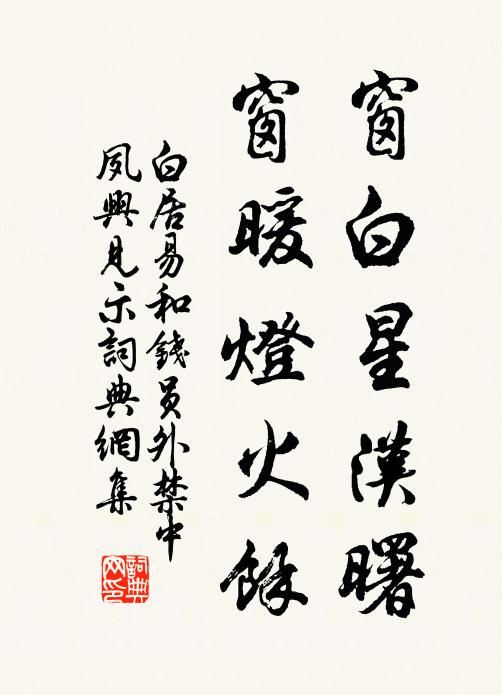 窗白星漢曙
窗暖燈火餘
白居易和錢員外禁中
夙興見示詞典網集
詞典
网印